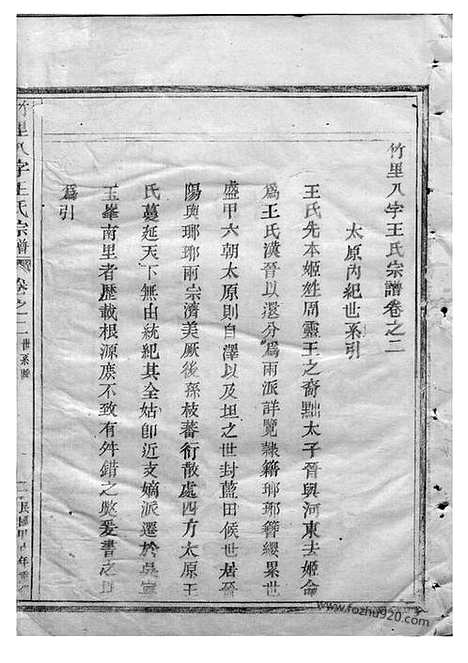 竹里八字王氏宗譜卷之二
太原內紀世系引
王氏先本姬姓周靈王之裔黜太子晉與河東去姬命
為王氏漢晉以還分為兩派詳覽隷籍瑯琊簪纓累世
盛甲六朝太原則自澤以及坦之世封藍田候世居晉
陽與瑯琊兩宗濟美厥後孫枝蕃衍散處四方太原王
氏蔓延天下無由統紀其全姑卽近支嫡派遷於吳
玉峯南里者歷載根源庶不致有舛錯之弊爰書之
為引
竹里八字王氏宗譜
卷之二
世系圖
民國甲
www.fozhu920.com